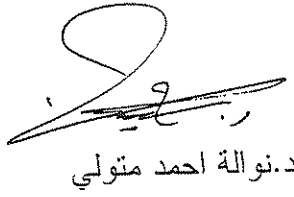 د.نوالة احمد متولي